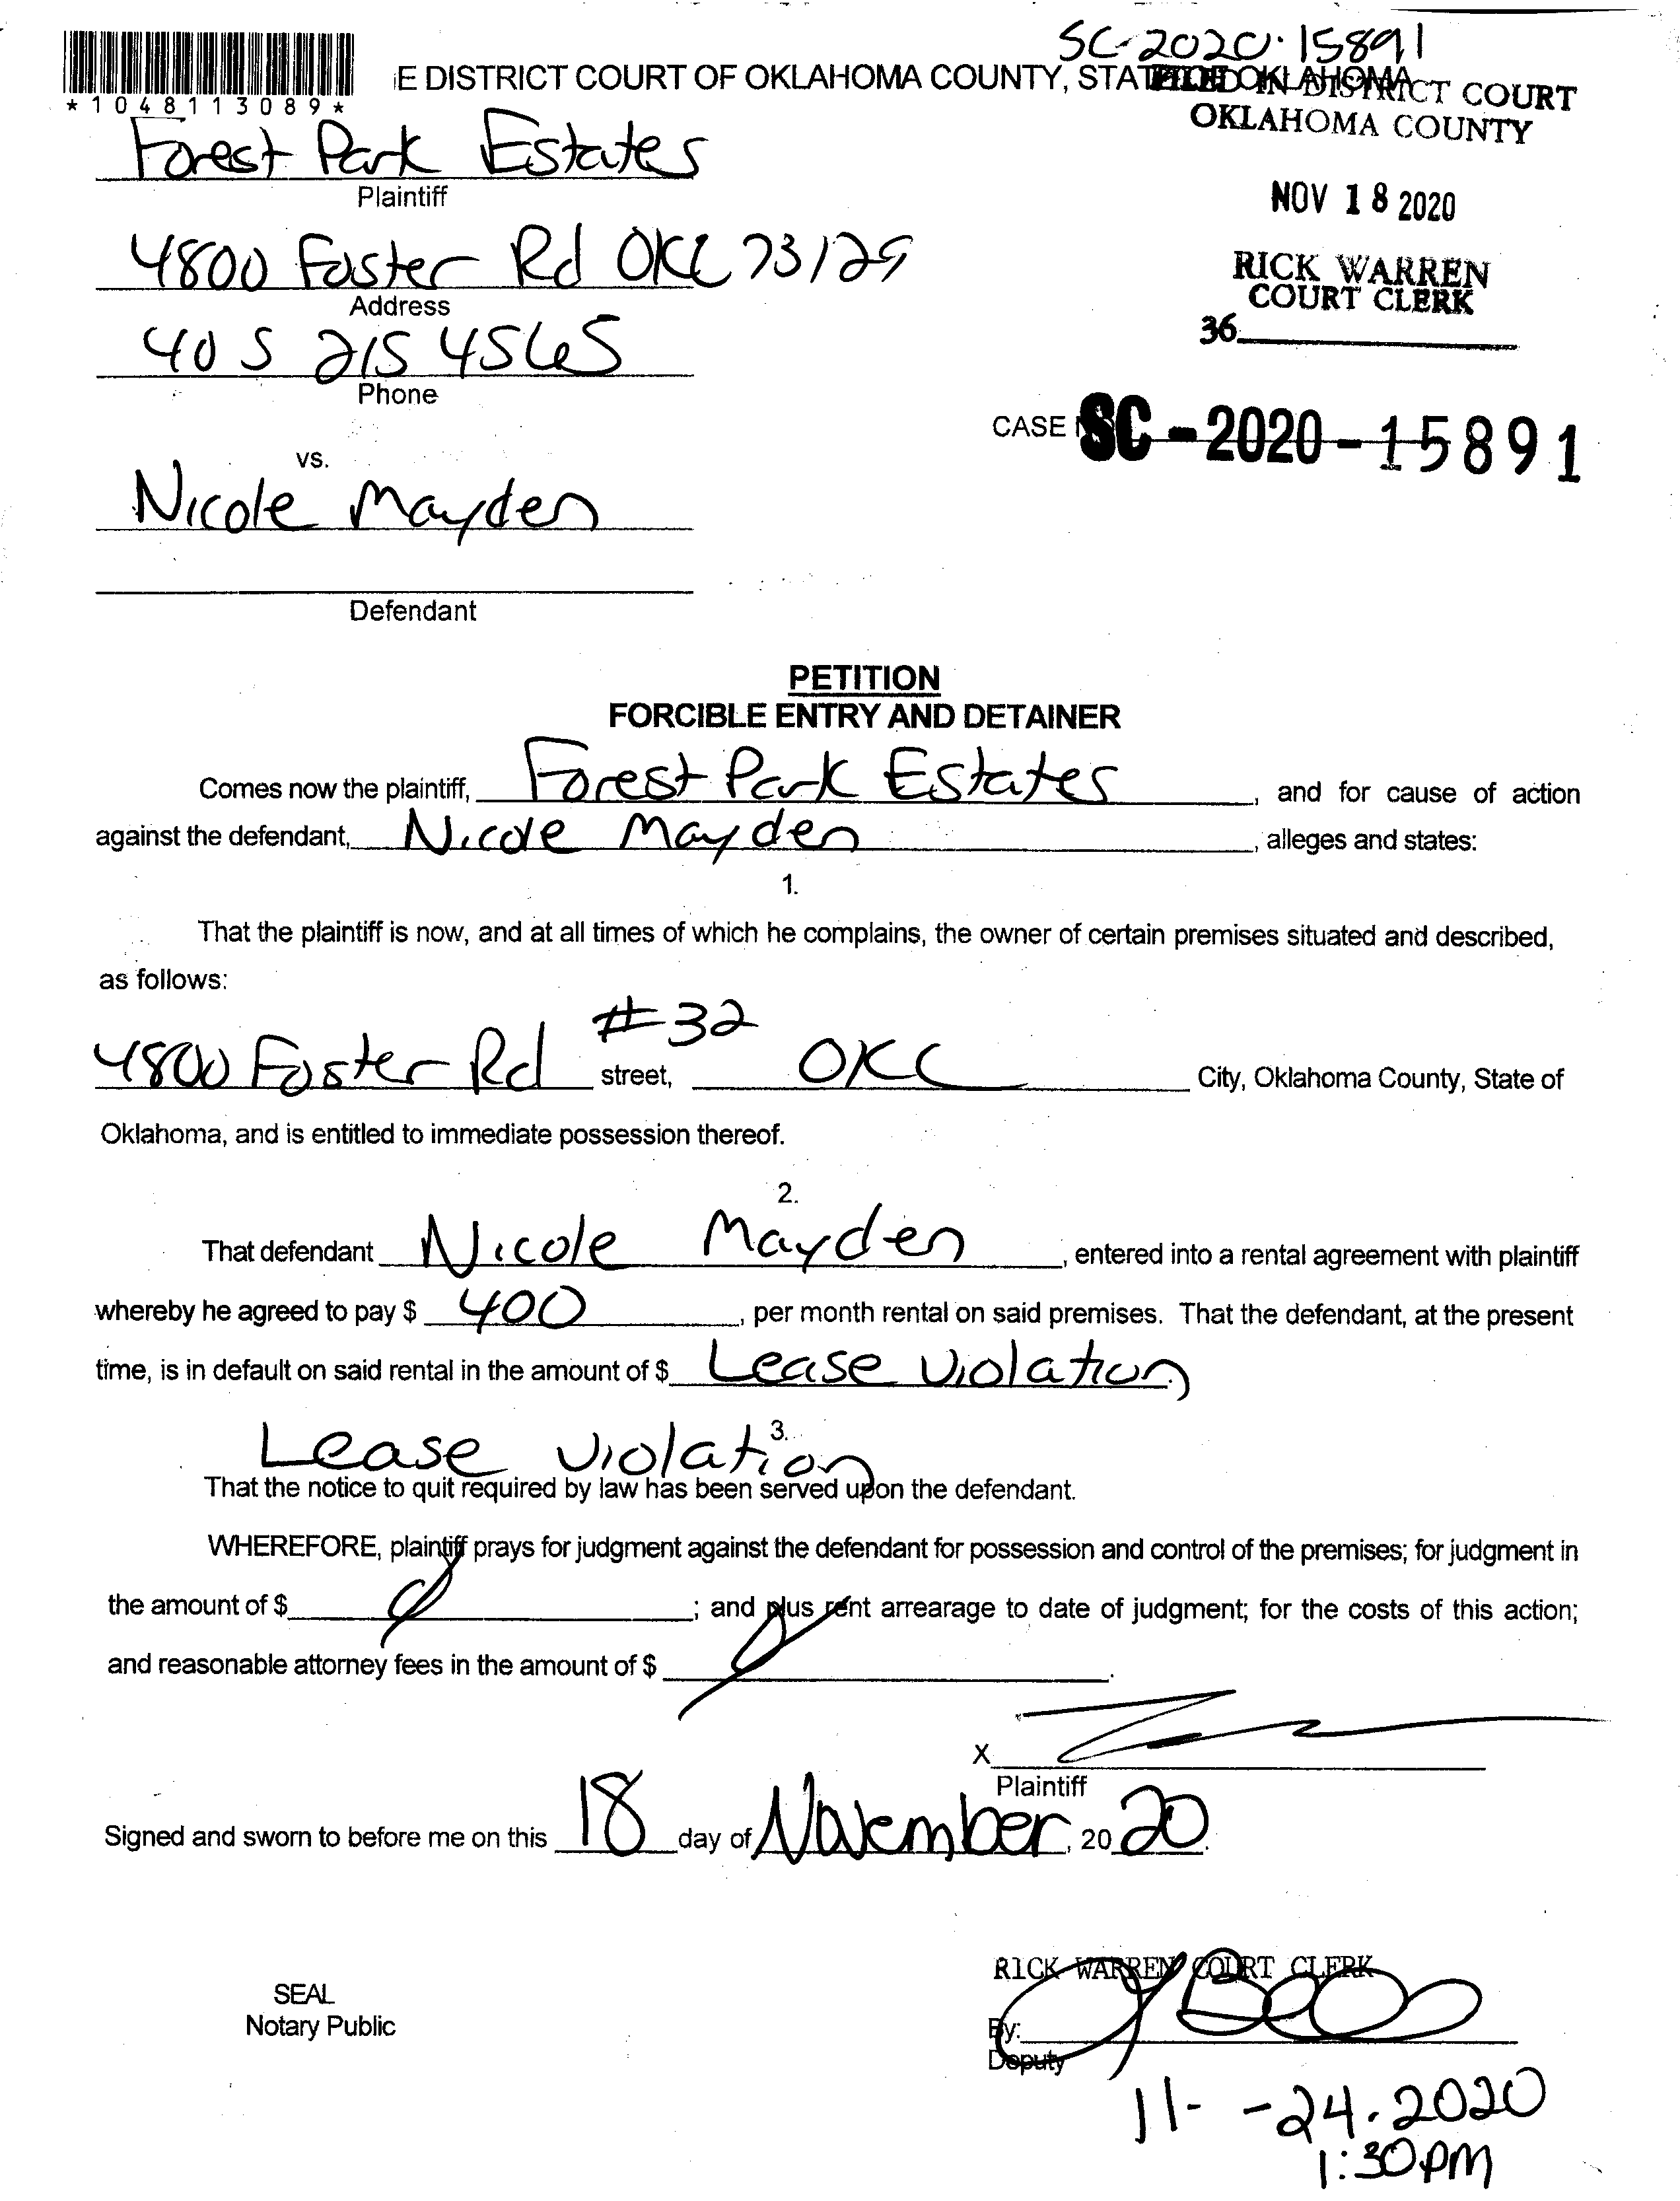 SC-2020-15891
*1048113089*
E DISTRICT COURT OF OKLAHOMA COUNTY, STATE OF OKLAHOMA
FILED IN DISTRICT COURT
OKLAHOMA COUNTY
Forest Park Estates
Plaintiff
NOV 18 2020
4800 Foster Rd OKC 73129
Address
RICK WARREN
COURT CLERK
36
405 215 4565
Phone
CASE NO. SC-2020-15891
vs.
Nicole Mayden
Defendant
PETITION
FORCIBLE ENTRY AND DETAINER
Comes now the plaintiff, Forest Park Estates, and for cause of action
against the defendant, Nicole Mayden, alleges and states:
1.
That the plaintiff is now, and at all times of which he complains, the owner of certain premises situated and described,
as follows:
#32
4800 Foster Rd street, OKC City, Oklahoma County, State of
Oklahoma, and is entitled to immediate possession thereof.
2.
That defendant Nicole Mayden, entered into a rental agreement with plaintiff
whereby he agreed to pay $ 400, per month rental on said premises. That the defendant, at the present
time, is in default on said rental in the amount of $ Lease Violation
3.
Lease Violation
That the notice to quit required by law has been served upon the defendant.
WHEREFORE, plaintiff prays for judgment against the defendant for possession and control of the premises; for judgment in
the amount of $ 0; and plus rent arrearage to date of judgment; for the costs of this action;
and reasonable attorney fees in the amount of $ 0.
X
Plaintiff
Signed and sworn to before me on this 18 day of November, 20 20.
RICK WARREN COURT CLERK
SEAL
Notary Public
By:
Deputy
11- -24.2020
1:30PM